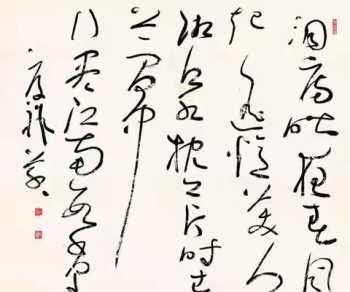 洞房昨夜春风
起遥憶美人
湘江水枕上片时春
梦中
行尽江南数千里